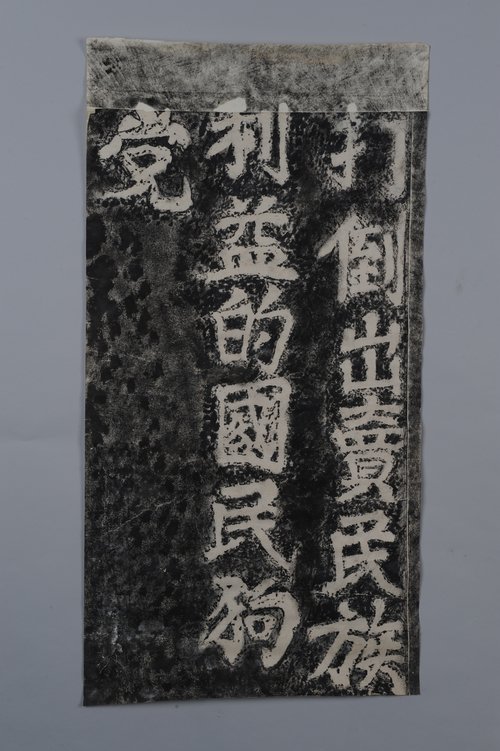 打倒出賣民族
利益的國民狗
党